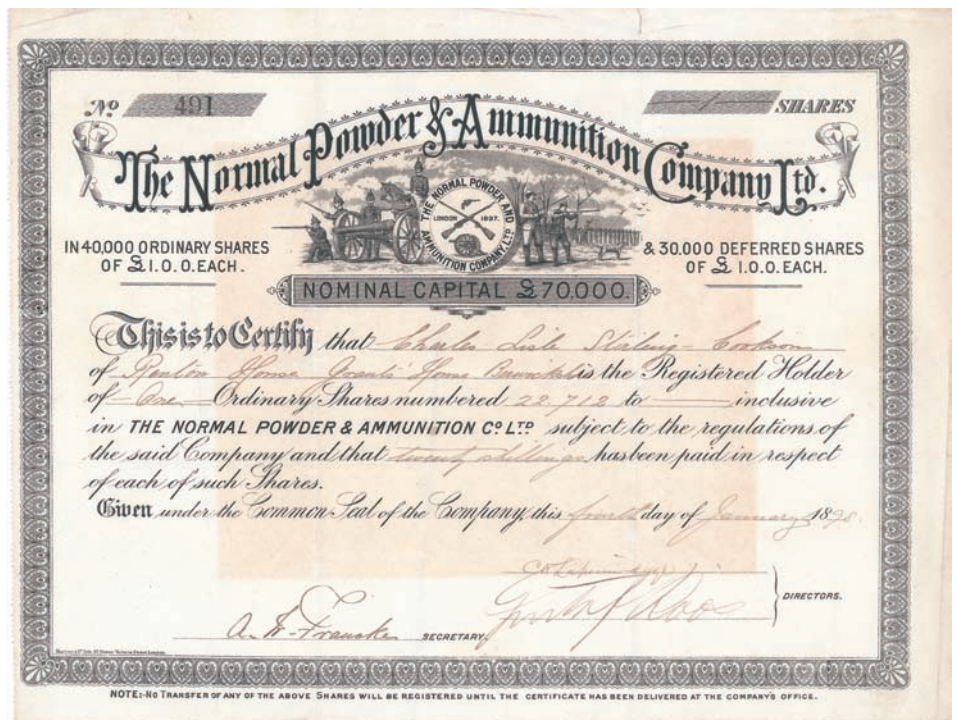 No 491 1 SHARES
The Normal Powder & Ammunition Company Ltd.
THE NORMAL POWDER AND AMMUNITION COMPANY, LTD
LONDON 1897.
IN 40,000 ORDINARY SHARES
OF £1.0.0. EACH.
& 30.000 DEFERRED SHARES
OF £ 1.0.0. EACH.
NOMINAL CAPITAL £70,000.
This is to Certify that Charles Lisle Stirling-Cookson
of Renton House Grants House is the Registered Holder
of One Ordinary Shares numbered 22.712 to inclusive
in THE NORMAL POWDER & AMMUNITION CO LTD subject to the regulations of
the said Company and that twenty shillings has been paid in respect
of each of such Shares.
Given under the Common Seal of the Company, this fourth day of January 1898.
DIRECTORS.
SECRETARY.
NOTE:- NO TRANSFER OF ANY OF THE ABOVE SHARES WILL BE REGISTERED UNTIL THE CERTIFICATE HAS BEEN DELIVERED AT THE COMPANY'S OFFICE.